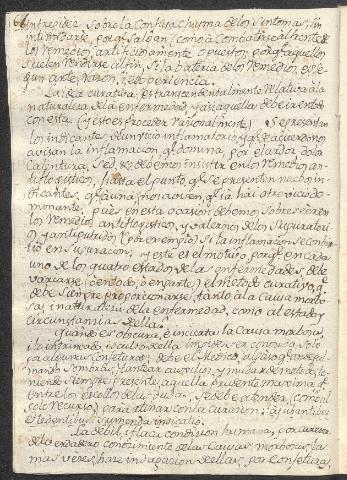 intrepidez sobre la confusa chusma de los sintomas, sin
intimidarte, porq. salgan, como a combatirse al frente de
los remedios, artificiosamente opuestos; porq. aquellos
suelen rendirse al fin, si la bateria de los remedios, es se-
gun arte, razon, i experiencia.
La idea curativa, es transcendentalmente relatiba a la
naturaleza de la enfermedad, y asi aquella debe ir en todo
con esta (y este es proceder racionalmente) Se presentan
los indicantes de un vicio inflamatorio, y q. de acuerdo nos
avisan la inflamacion q. domina por el ardor, dolor
Calentura, sed, &; debemos insistir en los remedios an-
tiflogisticos, hasta el punto, q. se presenten nuebos in-
dicantes, q. ia una, nos avisen, q. ia hai otro vicio do-
minante: pues en esta ocasion debemos sobreseer en
los remedios antiflogisticos, y valernos de los supuratori-
os, y antiputridos (por exemplo) si la inflamacion se combir-
tió en supuracion; y este es el motivo, porq. en cada
uno de los quatro estados de las enfermedades, debe
variarse (ó en todo, ó en parte) el metodo curativo, q.
debe siempre proporcionarse, tanto á la causa morbo-
sa, i naturaleza de la enfermedad, como al estado, y
circunstancias de ella.
Quando es obscura, é incierta la causa morbosa
i lo intrincado, i oculto de ella impiden ser conocida, solo
por algunas conjeturas; debe el Medico,
sombras, tantear auxilios, y mudar de metodo, te-
niendo siempre presente, aquella prudente maxima, q.
entre los escollos de las dudas, se debe atender, (como al
solo recurso) para atinar con la curacion: a juvantibus
et ledentibus sumenda indicatio.
La debil, i flaca condicion humana, por carecer
del verdadero conocimiento de las causas morbosas, las
mas veces, hace indagacion de ellas, por conjeturas,